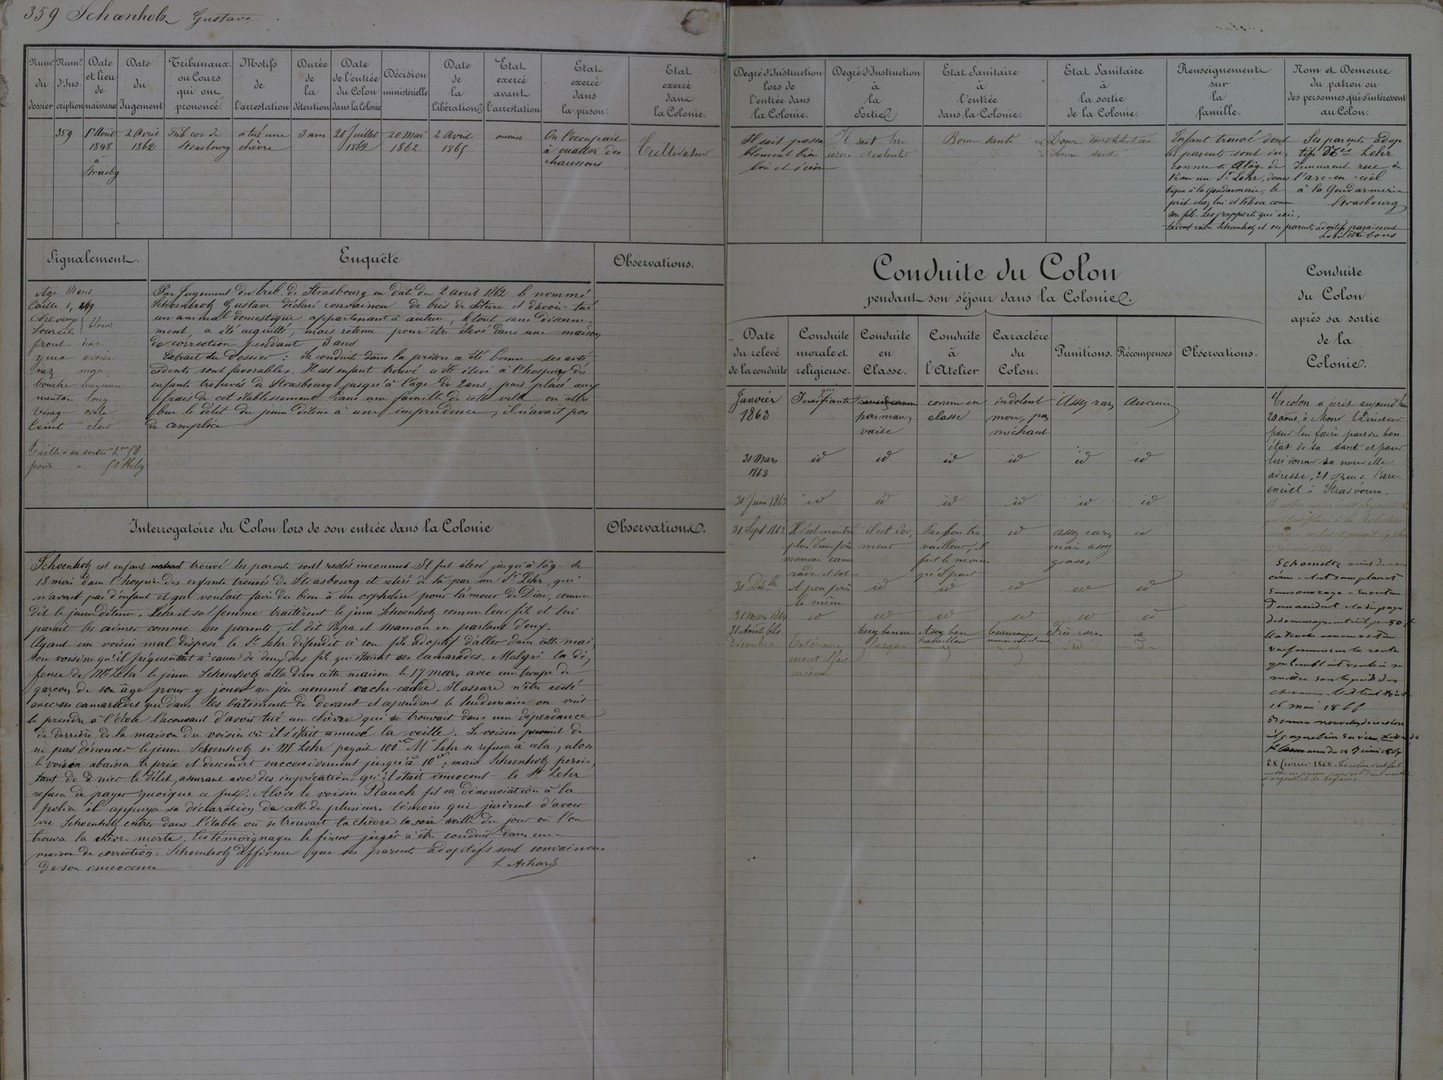 359 Schoenholz Gustave
Num.ro du dossier
Num.ro d'Inscription
Date et lieu de naissance
Date du Jugement
Tribunaux ou Cours qui ont prononcé
Motifs de l'arrestation
Durée de la détention
Date de l'entrée du Colon dans la Colonie
Décision ministérielle
Date de la libération
Etat exercé avant l'arrestation
Etat exercé dans la prison
Etat exercé dans la Colonie.
359
1er Août 1848 à Strasbg
2 Avril 1862
Trib cor de Strasbourg
a tué une chèvre
3 ans
28 Juillet 1862
20 Mai 1862
2 Avril 1865
aucun
On l'occupait à ouatter des chaussons
Cultivateur
Signalement.
Age 14 ans
Taille 1,
Cheveux
Sourcils
blond
front bas
yeux
nez
bouche moyenne
menton long
visage ovale
teint clair
Taille à sa sortie 1m 58
poids " 50 Kilog
Enquête
Observations.
Par Jugement du trib. de Strasbourg en date du 2 avril 1862 le nommé
Schoenholz Gustave déclaré convaincu de bris de clôture et d'avoir tué
un animal domestique appartenant à autrui, le tout sans discerne
ment, a été acquitté, mais retenu pour être élevé dans une maison
de correction pendant 3 ans
Extrait du Dossier : Sa conduite dans la prison a été bonne ses anté
cédents sont favorables. Il est enfant trouvé a été élevé à l'hospice des
enfants trouvés de Strasbourg jusqu'à l'age de 2 ans, puis placé aux
frais de cet établissement dans une famille de cette ville on attri
bue le délit du jeune détenu à une imprudence, il n'avait pas
de complice
Interrogatoire du Colon lors de son entrée dans la Colonie
Observations.
Schoenholz est enfant trouvé les parents sont restés inconnus. Il fut élevé jusqu'à l'âge de
18 mois dans l'hospice des enfants trouvés de Strasbourg et retiré de là par un Sr Lehr, qui
n'avait pas d'enfant et qui voulait faire du bien à un orphelin pour l'amour de Dieu, comme
dit le jeune détenu. Lehr et sa femme traitèrent le jeune Schoenholz comme leur fils et lui
parait les aimer comme ses parents, il dit Papa et Maman en parlant d'eux.
Ayant un voisin mal disposé le Sr Lehr défendit à son fils adoptif d'aller dans cette mai
son voisine qu'il fréquentait à cause de deux des fils qui étaient ses camarades. Malgré la dé
fense de Mr Lehr le jeune Schoenholz alla dans cette maison le 17 mars avec une troupe de
garçons de son âge pour y jouer au jeu nommé cache cache. Il assure n'être resté
avec ses camarades que dans les bâtiments de devant et cependant le lendemain on vint
le prendre à l'école l'accusant d'avoir tué une chèvre qui se trouvait dans une dépendance
de derrière de la maison du voisin où il s'était amusé la veille. Le voisin promit de
ne pas dénoncer le jeune Schoenholz si Mr Lehr payait 100f Mr Lehr se refusa à cela, alors
le voisin abaissa le prix et descendit successivement jusqu'à 10f; mais Schoenholz persis
tant de nier le délit, assurant avec des imprécations qu'il était innocent le Sr Lehr
refusa de payer quoique ce fut. Alors le voisin Rauch fit sa dénonciation à la
police et appuya sa déclaration de celle de plusieurs témoins qui jurèrent d'avoir
vu Schoenholz entrer dans l'étable où se trouvait la chèvre la veille du jour où l'on
trouva la chèvre morte. Ces témoignages le firent juger à être conduit dans une
maison de correction. Schoenholz affirme que ses parents adoptifs sont convaincus
de son innocence
Degré d'Instruction lors de l'entrée dans la Colonie.
Degré d'Instruction à la Sortie
Etat Sanitaire à l'entrée dans la Colonie.
Etat Sanitaire à la sortie de la Colonie.
Renseignements sur la famille.
Nom et Demeure du patron ou des personnes qui s'intéressent au Colon.
Il sait passa
blement bien
lire et écrire
Il sait lire
écrire et calculer
Bonne santé
Bonne constitution
bonne santé
Enfant trouvé dont
les parents sont in
connus à l'âge de
18 mois un Sr Lehr, domes
tique à la Gendarmerie, le
prit chez lui et l'éleva comme
son fils. Les rapports qui exis
taient entre Schoenholz et ses parents adoptifs paraissent
avoir été bons
Ses parents adop
tifs Lehr
demeurant rue de
l'arc-en-ciel
à la Gendarmerie
Strasbourg
Conduite du Colon
pendant son séjour dans la Colonie.
Conduite du Colon après sa sortie de la Colonie.
Date du relevé de la conduite
Conduite morale et religieuse.
Conduite en Classe.
Conduite à l'Atelier
Caractère du Colon.
Punitions.
Récompenses
Observations.
Janvier 1863
Insouciante
pas mau,
vaise
comme en
classe
indolent
mou, pas
méchant
Assez rare
Aucune
31 Mars 1863 id id id id id id
31 Juin 1863 id id id id id id
31 Sept 1863
mauvais cama
rade
travailleur, il
id
assez rares
mais assez
graves
id
31 Déc.bre
A peu près
le même
id id id id id
31 Mars 1864 id id id id id id
31 Août
décembre
très bonne
Assez bon
travailleur
Très rares
Ce colon a écrit aujourd'hui
20 août, à Mons. le Directeur
pour lui faire part du bon
état de sa santé et pour
lui donner sa nouvelle
adresse, 21 Rue de l'arc
en ciel à Strasbourg.
16 mai 1866
28 février 1868